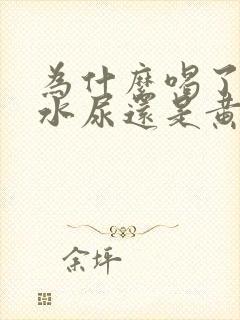 為什麼喝了
水尿還是黃
余坪